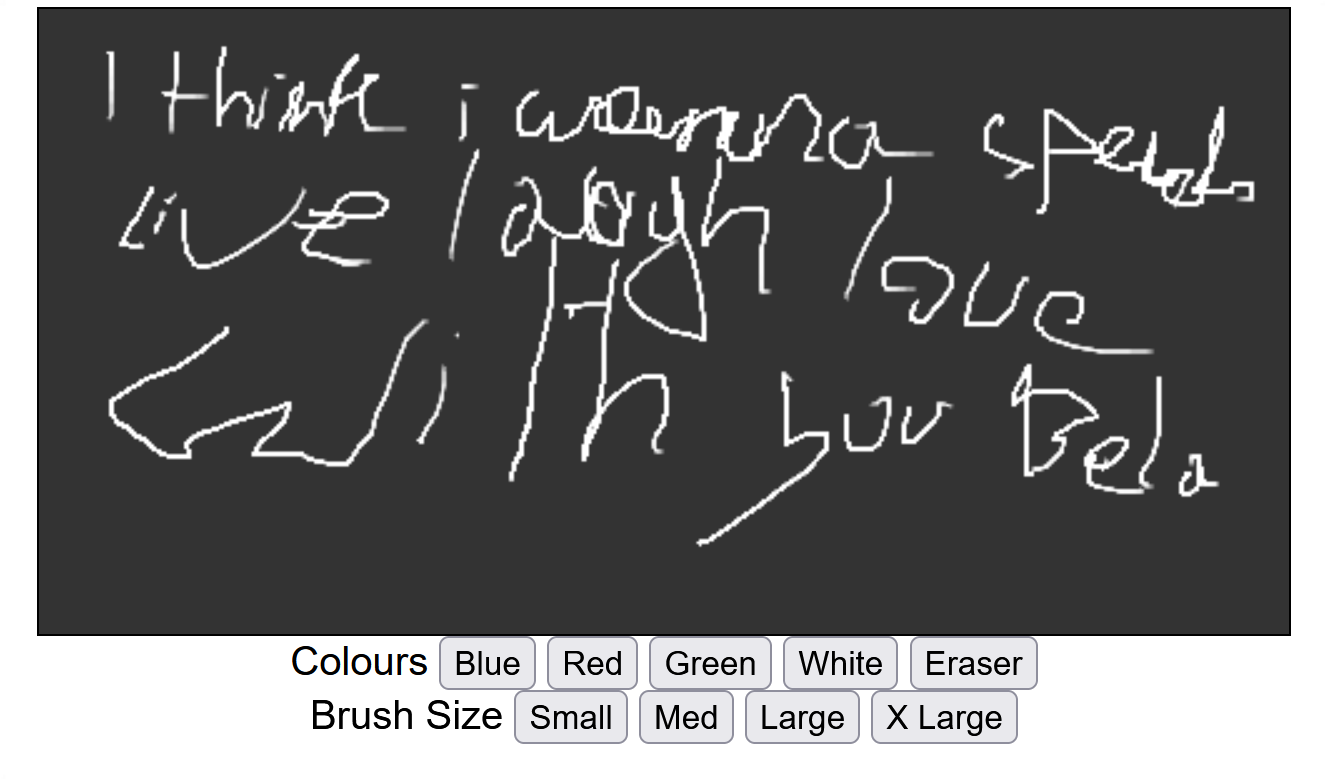 I think i wanna spend
Live laugh love
with you Bela
Colours Blue Red Green White Eraser
Brush Size Small Med Large X Large